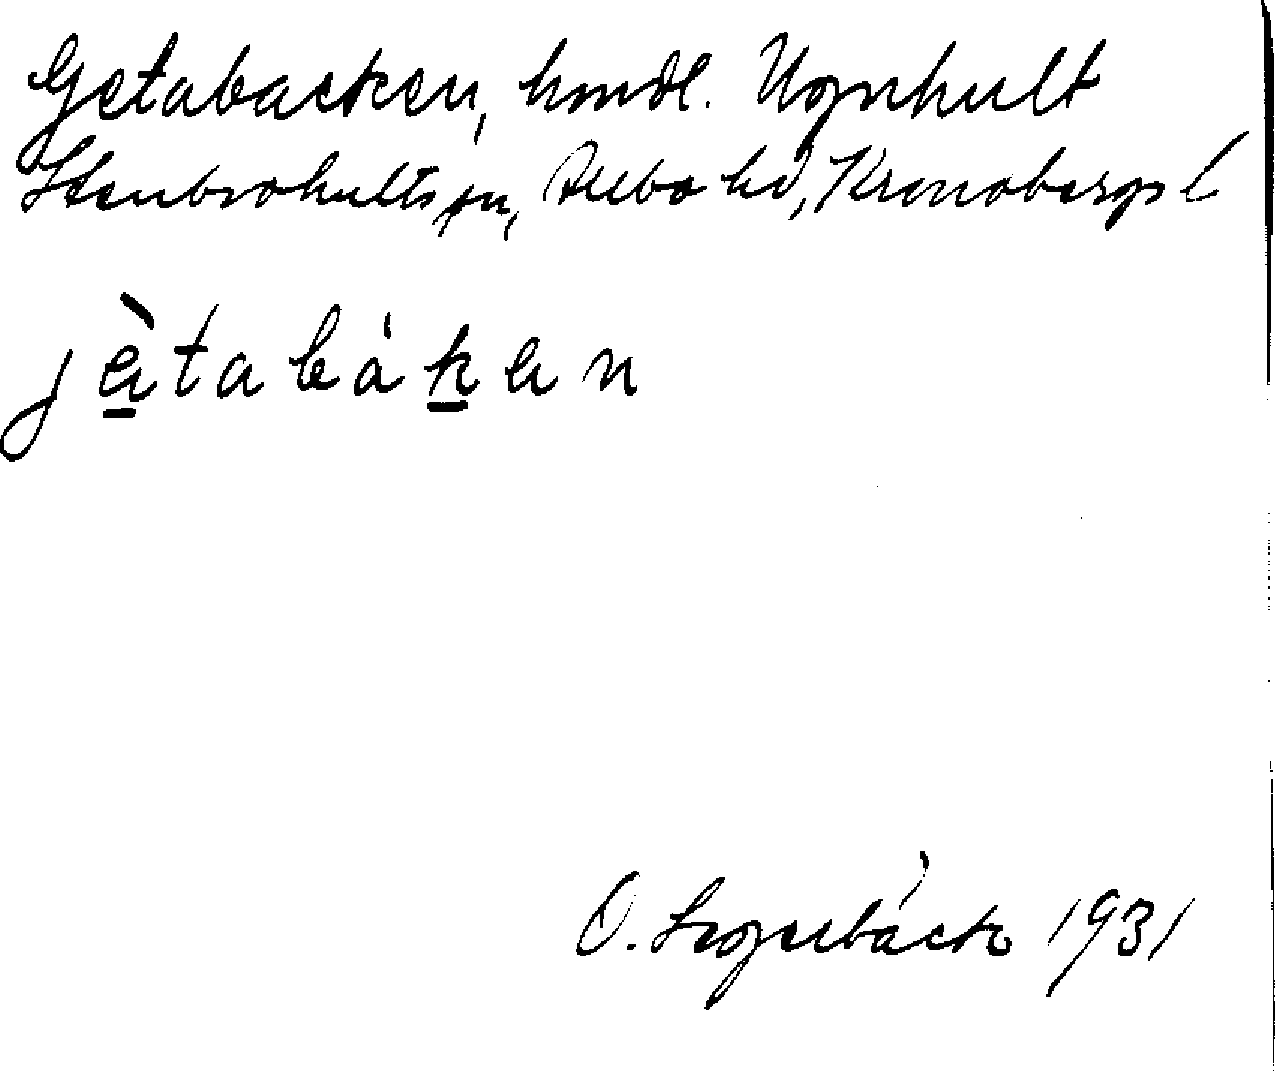 Getabacken, hmdl. Ugnhult
Stenbrohults sn, Allbo hd, Kronobergs l
jätabákan
O. 1931